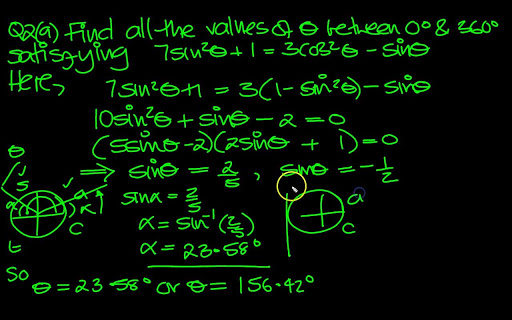 Q2(a) Find all the values of θ between 0° & 360°
satisfying 7sin²θ + 1 = 3cos²θ - sinθ
Here,
7sin²θ + 1 = 3(1 - sin²θ) - sinθ
10sin²θ + sinθ - 2 = 0
(5sinθ - 2)(2sinθ + 1) = 0
⇒ sinθ = 2/5, sinθ = -1/2
sinα = 2/5
α = sin⁻¹(2/5)
α = 23.58°
θ
s
a
α
α
t
c
a
c
So
θ = 23.58° or θ = 156.42°